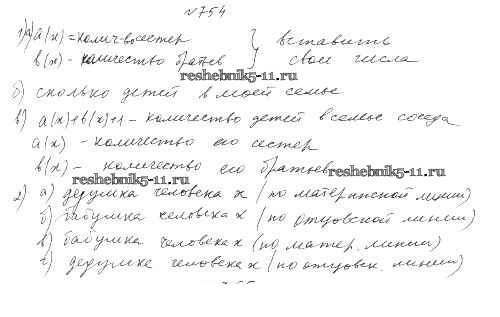 №754
1) а) a(x) = колич-во сестер } вставить
b(x) - количество братьев } свои числа
reshebnik5-11.ru
б) сколько детей в моей семье
в) a(x)+b(x)+1 - количество детей в семье соседа
a(x) - количество его сестер
b(x) - количество его братьев
reshebnik5-11.ru
reshebnik5-11.ru
2) а) дедушка человека x (по материнской линии)
б) бабушка человека x (по отцовской линии)
в) бабушка человека x (по матер. линии)
г) дедушка человека x (по отцовск. линии)